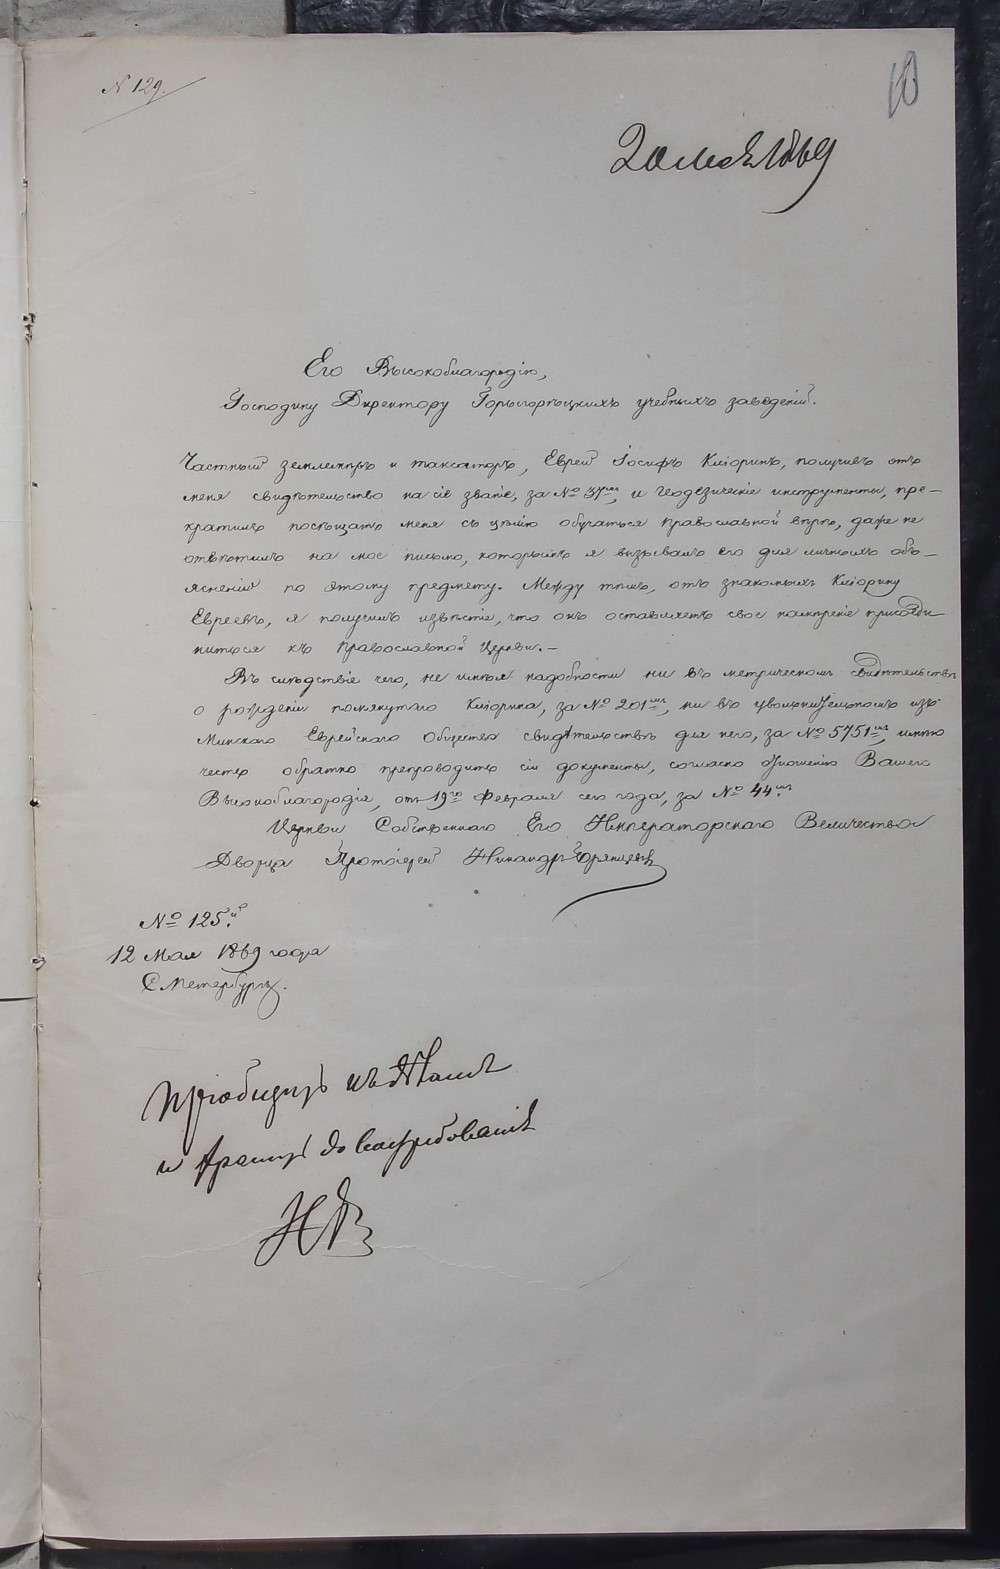 N 129.
10
20 Мая 1869
Его Высокоблагородію,
Господину Директору Горыгорецкихъ учебныхъ заведеній.
Частный землемѣръ и таксаторъ, Еврей Іосифъ Кліоринъ, получивъ отъ
меня свидѣтельство на сіе званіе, за № 37мъ, и геодезическіе инструменты, пре-
кратилъ посѣщать меня съ цѣлію обучаться православной вѣрѣ, даже не
отвѣтилъ на мое письмо, которымъ я вызывалъ его для личныхъ объ-
ясненій по этому предмету. Между тѣмъ, отъ знакомыхъ Кліорину
Евреевъ, я получилъ извѣстіе, что онъ оставляетъ свое намѣреніе присоеди-
ниться къ Православной Церкви.-
Въ слѣдствіе чего, не имѣя надобности ни въ метрическомъ свидѣтельствѣ
о рожденіи помянутаго Кліорина, за № 201мъ, ни въ увольнительномъ изъ
Минскаго Еврейскаго Общества свидѣтельствѣ для него, за № 5751мъ, имѣю
честь обратно препроводить сіи документы, согласно отношенію Вашего
Высокоблагородія, отъ 19го Февраля сего года, за № 44мъ.
Церкви Собственнаго Его Императорскаго Величества
Дворца Протоіерей Никандръ
№ 125й
12 Мая 1869 года
С Петербургъ.
Пріобщить къ дѣлу
и хранить до востребованія